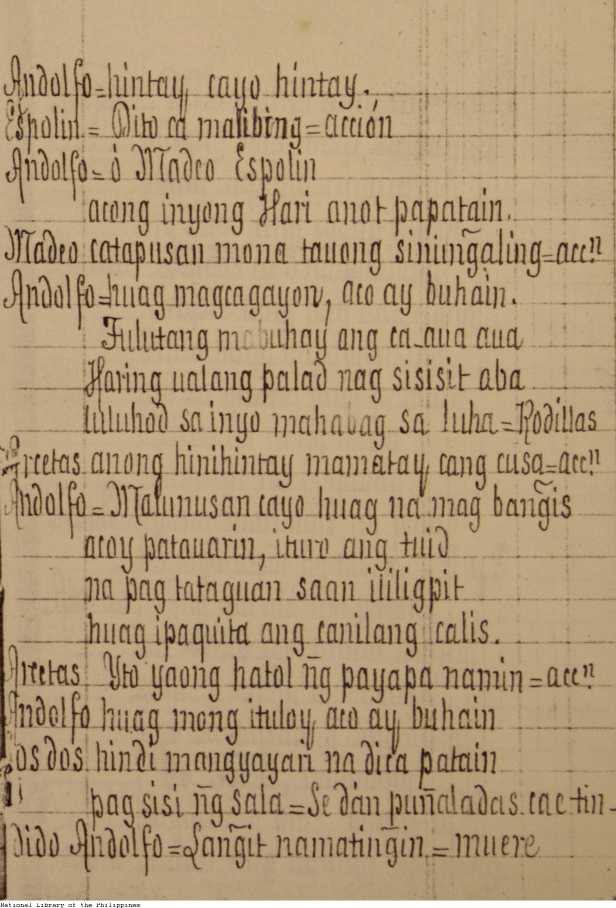 Andolfo=hintay, cayo hintay.
Espolin.= Dito ca malibing=acción
Andolfo=ò Madeo Espolin
acong inyong Hari anot papatain.
Madeo catapusan mona tauong sinun͠galing=accⁿ
Andolfo=huag magcagayon, aco ay buhain.
Tulutang mabuhay ang ca-aua aua
Haring ualang palad nag sisisit aba
luluhod sa inyo mahabag sa luha=Rodillas
Arcetas anong hinihintay mamatay, cang cusa=accⁿ
Andolfo=Malunusan cayo huag na mag ban͠gis
acoy patauarin, ituro ang tuid
na pag tataguan saan iiligpit
huag ipaquita ang canilang calis.
Arcetas Yto yaong hatol n͠g payapa namin=accⁿ
Andolfo huag mong ituloy, aco ay, buhain
Los dos. hindi mangyayari na dica patain
pag sisi n͠g sala=Se dan puñaladas. cae tin-
dido Andolfo=Lan͠git namatin͠gin.=muere
National Library of the Philippines